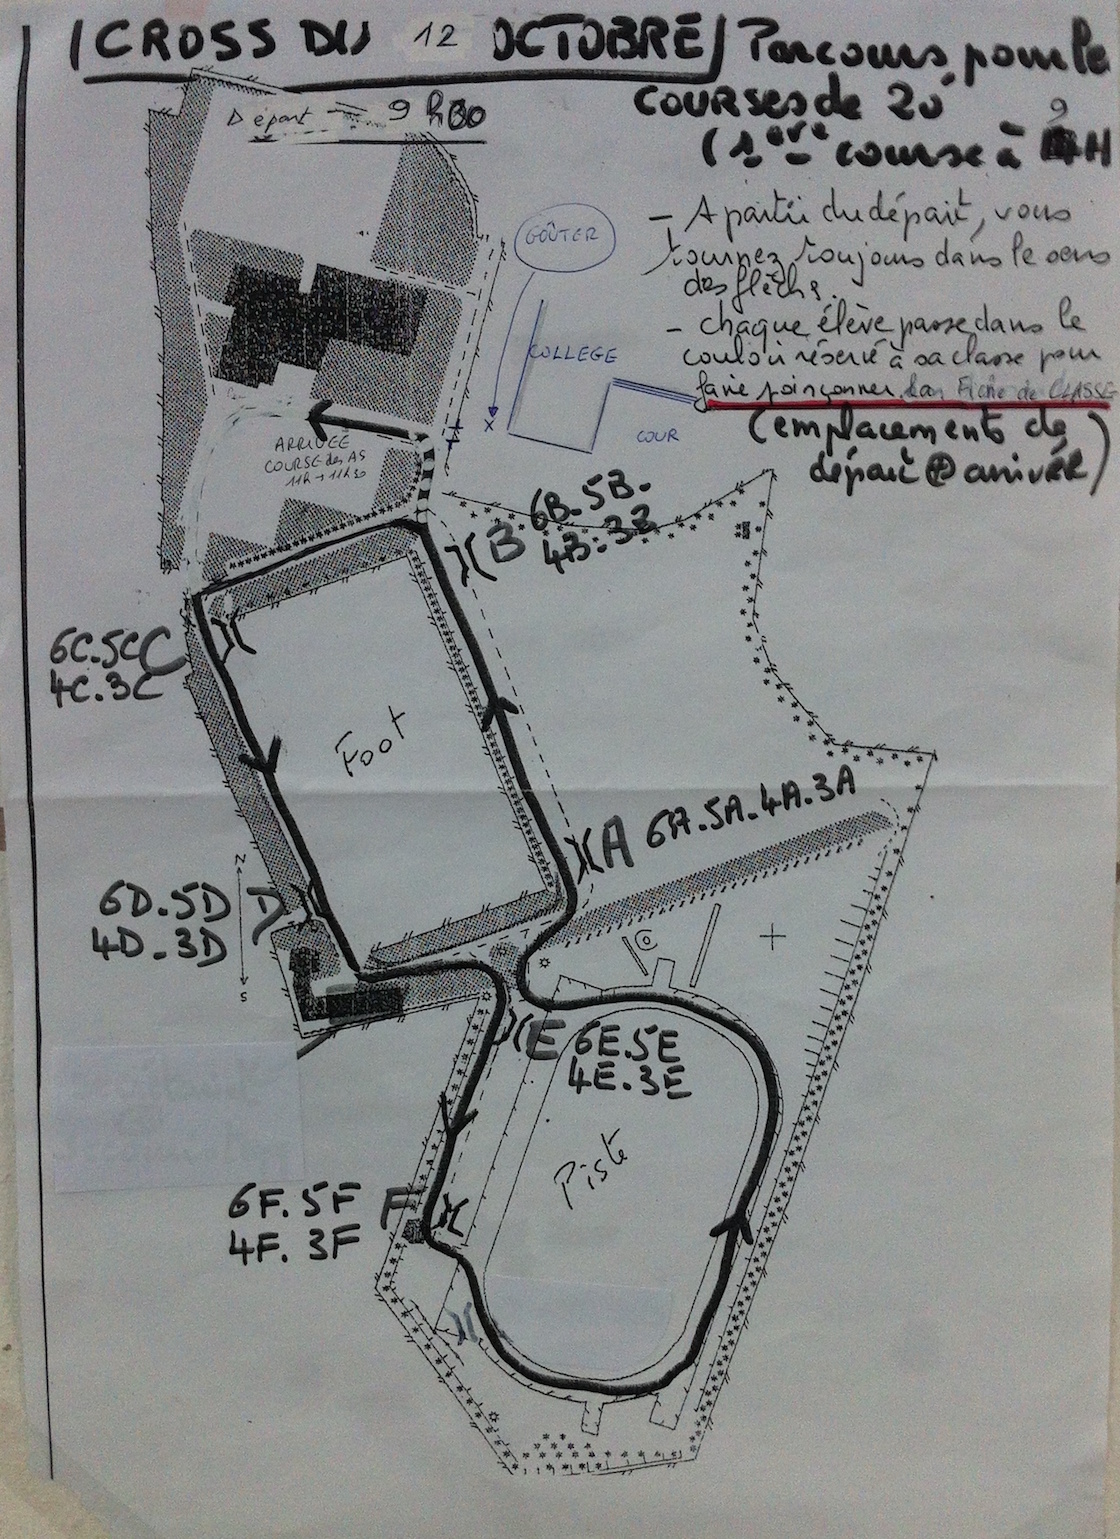 CROSS DU 12 OCTOBRE Parcours pour le
COURSES de 20'
(1ère course à 9H
Départ 9 h 30
- A partir du départ, vous
tournez toujours dans le sens
des flèches.
- chaque élève passe dans le
couloir réservé à sa classe pour
faire poinçonner Fiche de CLASSE
(emplacements de
départ et arrivée)
GOÛTER
COLLEGE
COUR
ARRIVÉE
COURSE des AS
11h → 11h30
B 6B.5B.
4B.3B
6C.5C C
4C.3C
Foot
A 6A.5A.4A.3A
N
6D.5D D
4D.3D
S
E 6E.5E
4E.3E
Piste
6F.5F F
4F.3F